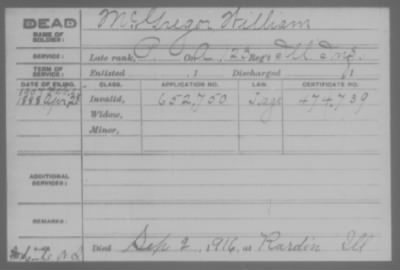 DEAD
NAME OF SOLDIER: McGregor William
SERVICE: Late rank, P. Co. A, 2d Reg't Ill Inf.
TERM OF SERVICE: Enlisted , 1 Discharged , 1
DATE OF FILING. CLASS. APPLICATION NO. LAW. CERTIFICATE NO.
1888 Apr 28 Invalid, 652,750 474,739
Widow,
Minor,
ADDITIONAL SERVICES:
REMARKS:
Died Sep 2, 1916, at Kardin Ill